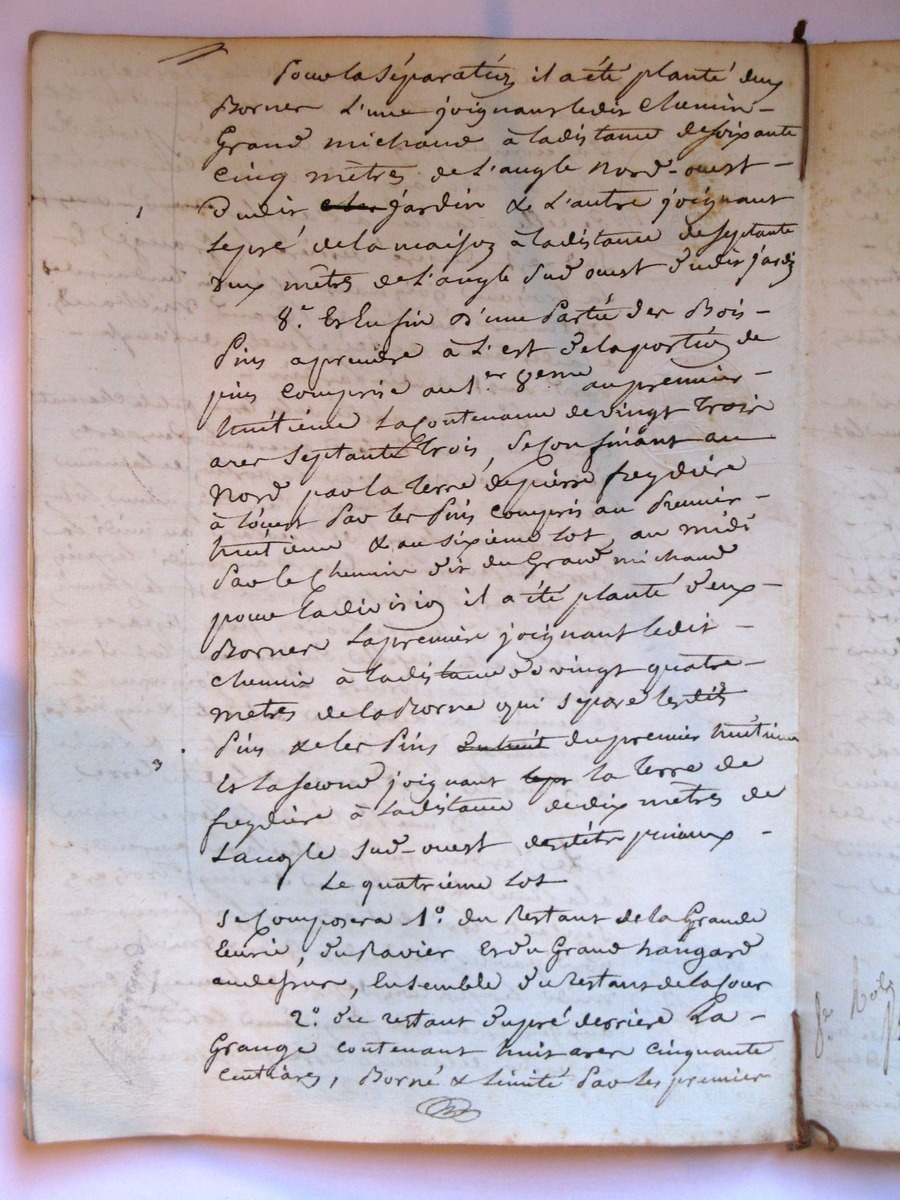 Pour la Séparation il a été planté deux
Bornes L'une joignant ledit Chemin
Grand michaud à la distance de soixante
Cinq mètres de L'angle Nord-ouest
dudit jardin & L'autre joignant
le pré de la maison à la distance de septante
deux mètres de L'angle Sud ouest dudit jardin
8.° Et Enfin d'une Partie des Bois
Pins a prendre à L'est de la portion de
pins comprise au 1er 8eme au premier
huitième La Contenance de vingt trois
ares septante trois, Se Confinant au
Nord par la Terre de pierre freydière
à l'ouest Par les Pins compris au Premier
huitième & au sixième Lot, au midi
Par le Chemin dit du Grand michaud
pour la division il a été planté deux
Bornes La première joignant ledit
Chemin à la distance de vingt quatre
mètres de la Borne qui sépare lesdits
Pins & les Pins du premier huitième
Et la seconde joignant la Terre de
freydière à la distance de dix mètres de
L'angle Sud-ouest
Le quatrième Lot
Se Composera 1°. du Restant de la Grande
Eurie, du Ravier Et du Grand hangard
au dessus, Ensemble du Restant de la Cour
2°. du restant du pré derrière La
Grange contenant huit ares Cinquante
Centiares, Borné & Limité Par les premier
1
3